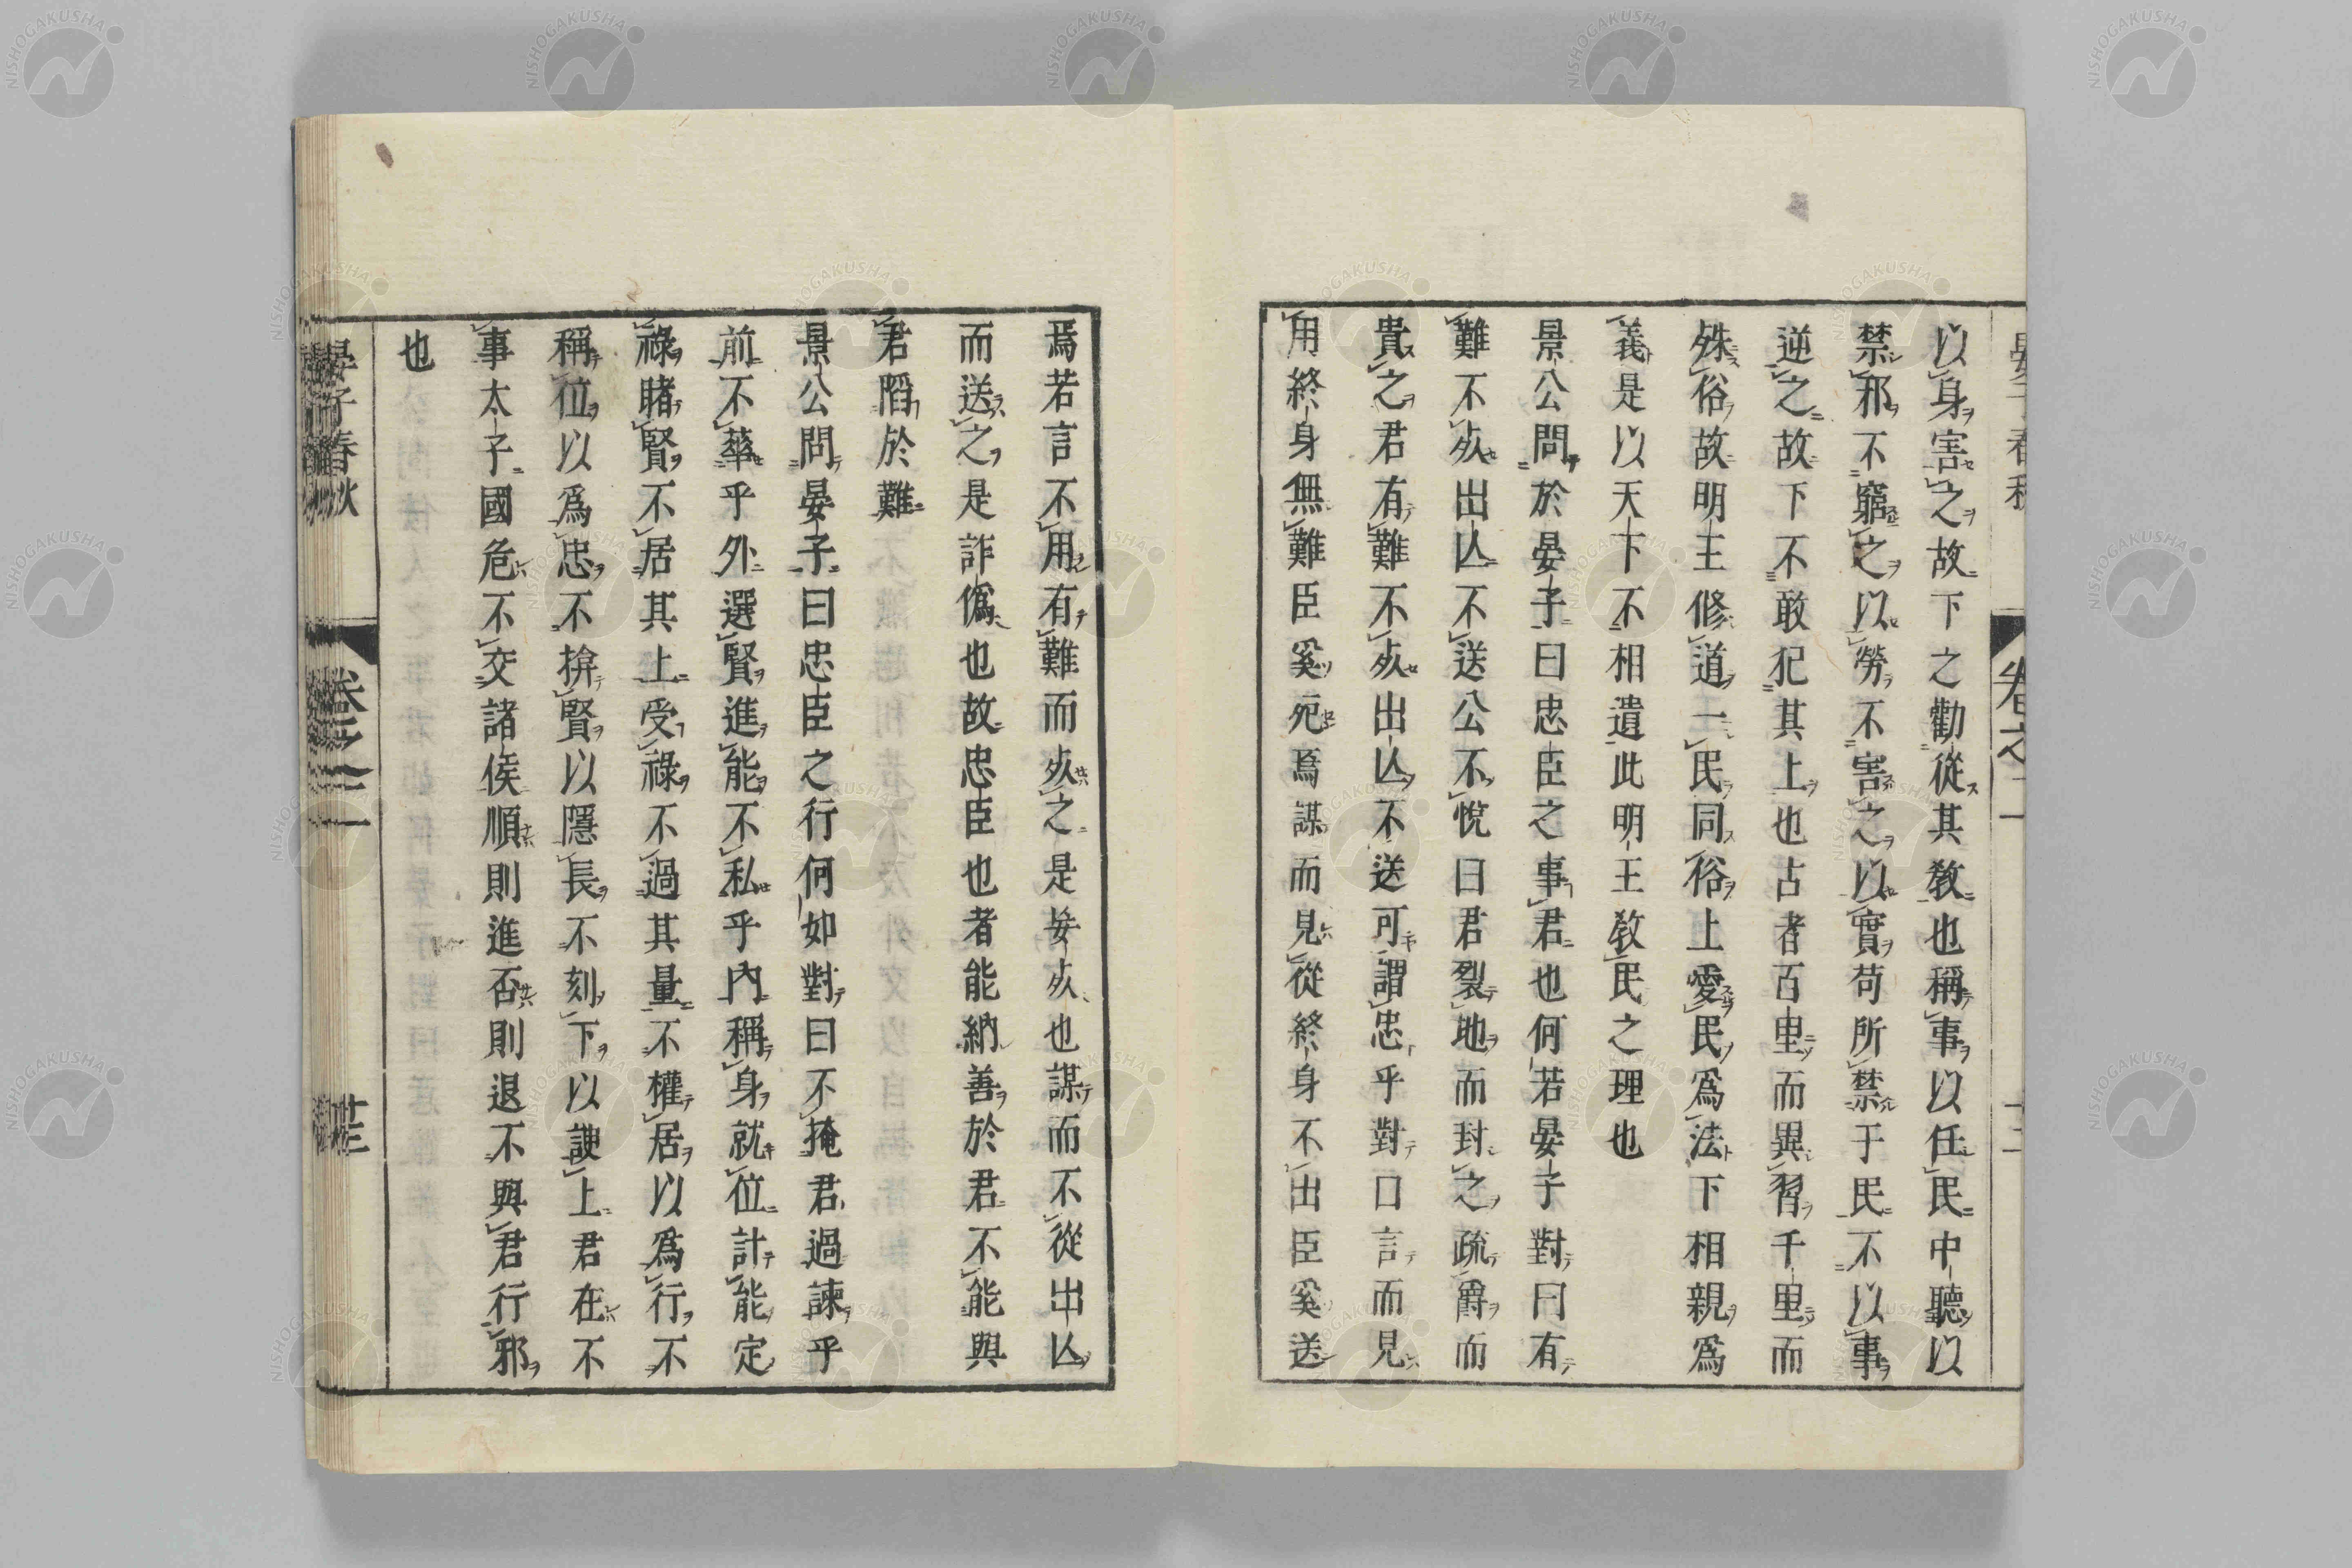 以身害之故下之勸從其教也稱事以任民中聽以
禁邪不窮之以勞不害之以實苟所禁于民不以事
逆之故下不敢犯其上也古者百里而異習千里而
殊俗故明王修道一民同俗上愛民爲法下相親爲
義是以天下不相遺此明王教民之理也
景公問於晏子曰忠臣之事君也何若晏子對曰有
難不死出亾不送公不悅曰君裂地而封之疏爵而
貴之君有難不死出亾不送可謂忠乎對曰言而見
用終身無難臣奚死焉謀而見從終身不出臣奚送
焉若言不用有難而死之是妄死也謀而不從出亾
而送之是詐僞也故忠臣也者能納善於君不能與
君陷於難
景公問晏子曰忠臣之行何如對曰不掩君過諫乎
前不華乎外選賢進能不私乎內稱身就位計能定
祿睹賢不居其上受祿不過其量不權居以爲行不
稱位以爲忠不揜賢以隱長不刻下以諛上君在不
事太子國危不交諸侯順則進否則退不與君行邪
也
晏子春秋
卷之三
廿三
NISHOGAKUSHA